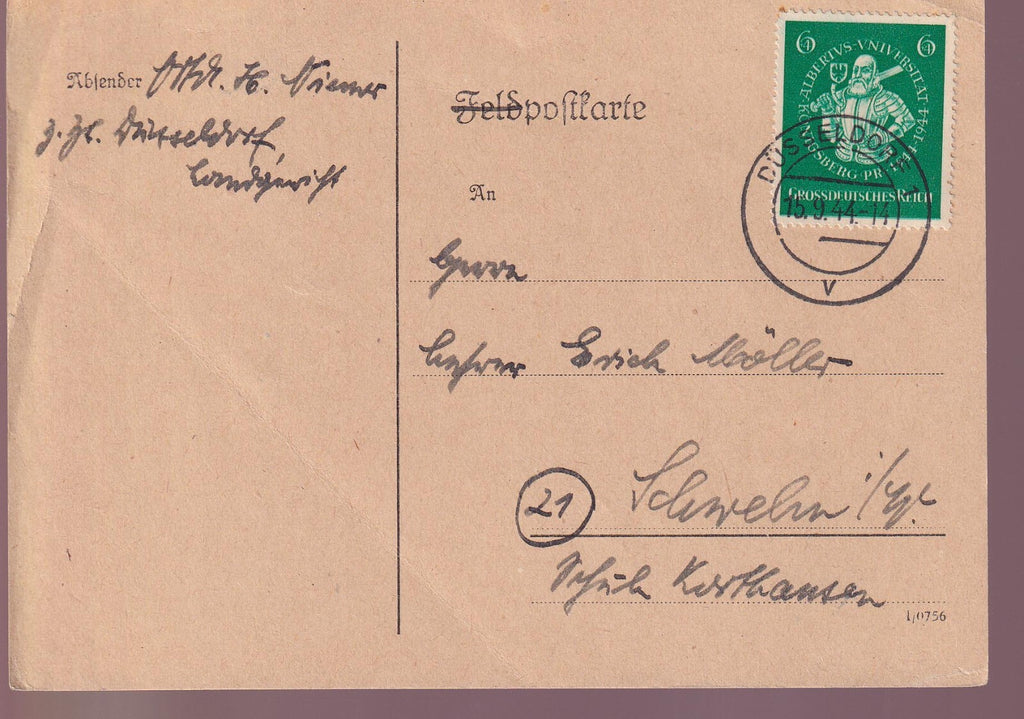 Absender Uffz. H. Niemer
z. Zt. Düsseldorf
Landgericht
Feldpostkarte
An
Herrn
Lehrer Erich Möller
21 Schwelm i/W.
Schule
1/0756
6 6
ALBERTVS-VNIVERSITÄT
1944
KÖNIGSBERG-PR
GROSSDEUTSCHES REICH
DÜSSELDORF 1
15.9.44.-14
v